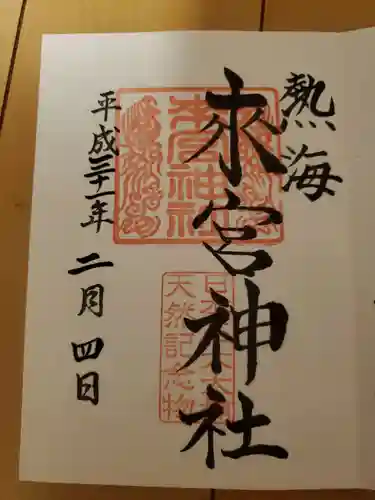 熱海
來宮神社
平成三十一年
二月四日
來宮神社
天然記念物